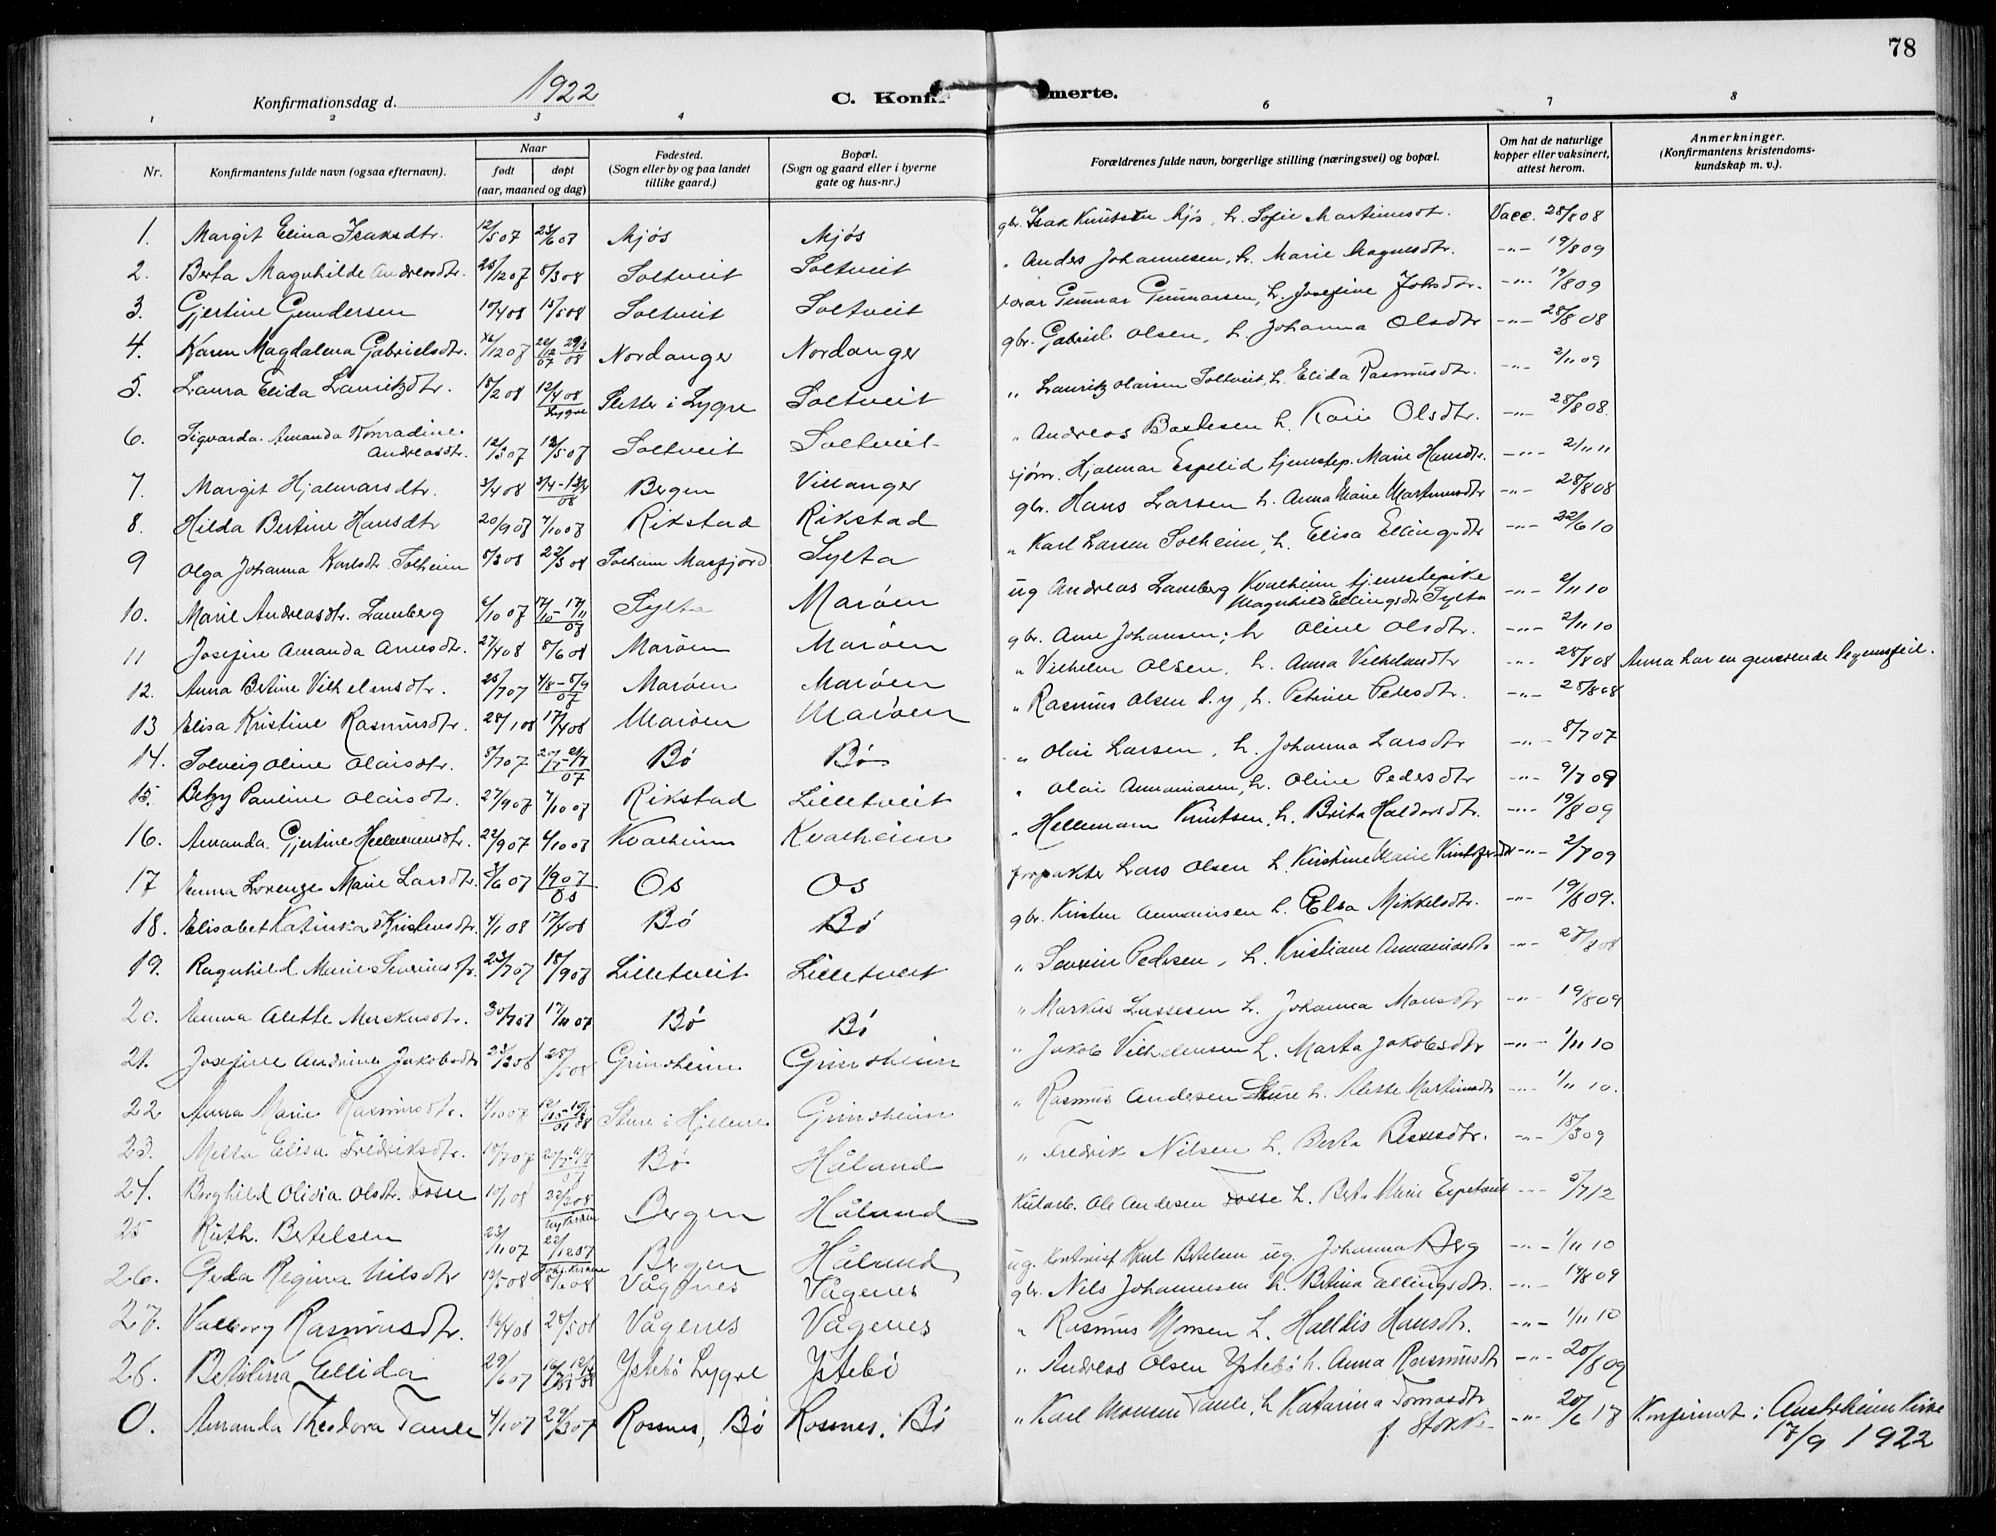 78
Konfirmationsdag d. 1922
C. Konfir merte.
1 2 3 4 5 6 7 8
Nr. Konfirmantens fulde navn (ogsaa efternavn). Naar født døpt (aar, maaned og dag) Fødested. (Sogn eller by og paa landet tillike gaard.) Bopæl. (Sogn og gaard eller i byerne gate og hus-nr.) Forældrenes fulde navn, borgerlige stilling (næringsvei) og bopæl. Om hat de naturlige kopper eller vaksinert, attest herom. Anmerkninger. (Konfirmantens kristendoms-kundskap m. v.).
1. Margit Elina Isaksdtr. 12/5 07 23/6 07 Mjøs Mjøs gbr. Isak Knutsen Mjøs, h. Sofie Martinusdtr. Vacc. 28/8 08
2. Berta Magnhilde Andreasdtr. 25/12 07 8/3 08 Soltveit Soltveit " Anders Johannesen, h. Marie Magnusdtr. -"- 19/8 09
3. Gjertine Gundersen 10/4 08 15/5 08 Soltveit Soltveit Gunnar Gunnarsen, h. Josefine Johsdtr. -"- 19/8 09
4. Karen Magdalena Gabrielsdtr. /12 07 Nordanger Nordanger gbr. Gabriel Olsen, h. Johanna Olsdtr -"- 28/8 08
5. Laura Elida Lauritzdtr. 15/2 08 12/4 08 Lygre Sletten i Lygre Soltveit " Lauritz Olaisen Soltveit, h. Elida Rasmusdtr. -"- 2/11 09
6. Sigvarda Amanda Konradine Andreasdtr. 12/3 07 12/5 07 Soltveit Soltveit " Andreas Bastesen h. Kari Olsdtr. -"- 28/8 08.
7. Margit Hjalmarsdtr. 3/4 08 Bergen Villanger sjøm. Hjalmar Espelid tjenestep. Marie Hansdtr. -"- 2/11 11
8. Hilda Bertine Hansdtr 20/9 07 7/10 07 Rikstad Rikstad gbr. Hans Larsen h. Anna Marie Martinusdtr -"- 28/8 08
9 Olga Johanna Karlsdtr. Solheim 8/3 08 22/3 08 Solheim Masfjord Sylta " Karl Larsen Solheim, h. Elisa Ellingsdtr -"- 22/6 10
10. Marie Andreasdtr. Lamberg 6/10 07 17/10-17/11 07 Sylta Marøen ug Andreas Lamberg Kvalheim tjenestepike Magnhild Ellingsdtr Sylta -"- 2/11 10
11 Josefine Amanda Arnesdtr. 27/4 08 8/6 08 Marøen Marøen gbr. Arne Johansen; h Oline Olsdtr. -"- 2/11 10
12. Anna Bertine Vilhelmsdtr. 25/7 07 4/8-8/9 07 Marøen Marøen " Vilhelm Olsen, h. Anna Vilhelmdtr -"- 28/8 08 Anna har en generende legemsfeil.
13 Elisa Kristine Rasmusdtr. 28/1 08 17/4 08 Marøen Marøen " Rasmus Olsen d.y, h. Petrine Pedersdtr. -"- 28/8 08
14. Solveig Oline Olaisdtr. 8/7 07 Bø Bø " Olai Larsen, h. Johanna Larsdtr -"- 8/7 07
15. Betzy Pauline Olaisdtr. 27/9 07 7/10 07 Rikstad Lilletveit " Olai Annaniasen, h. Oline Pedersdtr -"- 9/7 09
16. Amanda Gjertine Hellemensdtr. 22/9 07 6/10 07 Kvalheim Kvalheim " Hellemann Knutsen, h. Brita Haldorsdtr. -"- 19/8 09
17 Emma Lorenze Marie Larsdtr. 3/6 07 19 07 Os Os Os forpakter Lars Olsen h. Kristine Marie Kristofersdtr -"- 2/7 09
18. Elisabet Katinka Kristensdtr. 4/1 08 17/4 08 Bø Bø gbr. Kristen Annaniasen h. Elsa Mikkelsdtr. -"- 19/8 09.
19. Ragnhild Marie Severinsdtr. 23/7 07 18/9 07 Lilletveit Lilletveit " Severin Pedersen, h. Kristiane Annaniasdtr -"- 28/8 08
20. Emma Alette Markusdtr. 30/7 07 17/11 07 Bø Bø " Markus Lassesen h. Johanna Monsdtr -"- 19/8 09
21. Josefine Andrine Jakobsdtr 23/3 08 28/5 08 Grimsheim Grimsheim " Jakob Vilhelmsen h. Marta Jakobsdtr -"- 1/11 10
22 Anna Marie Rasmusdtr. 4/10 07 Sture i Hjelme Grimsheim " Rasmus Andersen Sture h. Alette Martinusdtr -"- 1/11 10.
23. Metta Elisa Fredriksdtr. 10/7 07 Bø Håland " Fredrik Nilsen h. Berta Lassesdtr. -"- 18/3 09
24. Borghild Olivia Olsdtr. Fosse 10/1 08 22/3 08 Nykirken Bergen Håland Ole Andersen Fosse h. Berta Marie Espetveit -"- 5/7 12
25 Ruth. Bertelsen 23/11 07 22/12 07 Bergen Håland ug. Karl Bertelsen ug. Johanna Berg -"- 1/11 10
26. Gerda Regina Nilsdtr 12/5 08 8/6 08 Vågenes Vågenes gbr. Nils Johannesen h. Betina Ellingsdtr. -"- 19/8 09
27. Valborg Rasmusdtr. 16/4 08 28/5 08 Vågenes Vågenes " Rasmus Monsen h. Halldis Hansdtr. -"- 1/11 10
28. Betolina Ellida 29/6 07 Ystebø Lygre Ystebø " Andreas Olsen Ystebø h. Anna Rasmusdtr -"- 20/8 09
0. Amanda Theodora Taule 4/1 07 29/3 07 Rosnes, Bø Rosnes. Bø " Karl Monsen Taule, h Katarina Tomasdtr f. Stokke -"- 20/6 18 Konfirmert i Austrheim Kirke 17/9 1922